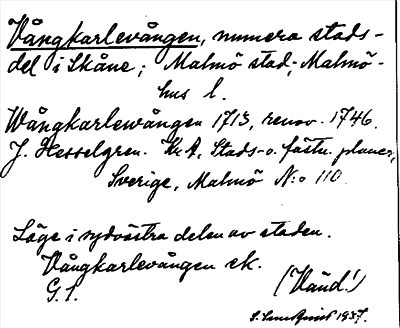 Vångkarlevången, numera stads-
del i Skåne; Malmö stad, Malmö-
hus l.
Wångkarlewången 1713, renov. 1746.
J. Hesselgren. Kr. A, Stads- o. fästn. planer,
Sverige, Malmö N:o 110.
Läge i sydöstra delen av staden.
Vångkarlevången ek.
G. 1.
(Vänd!)
1937.